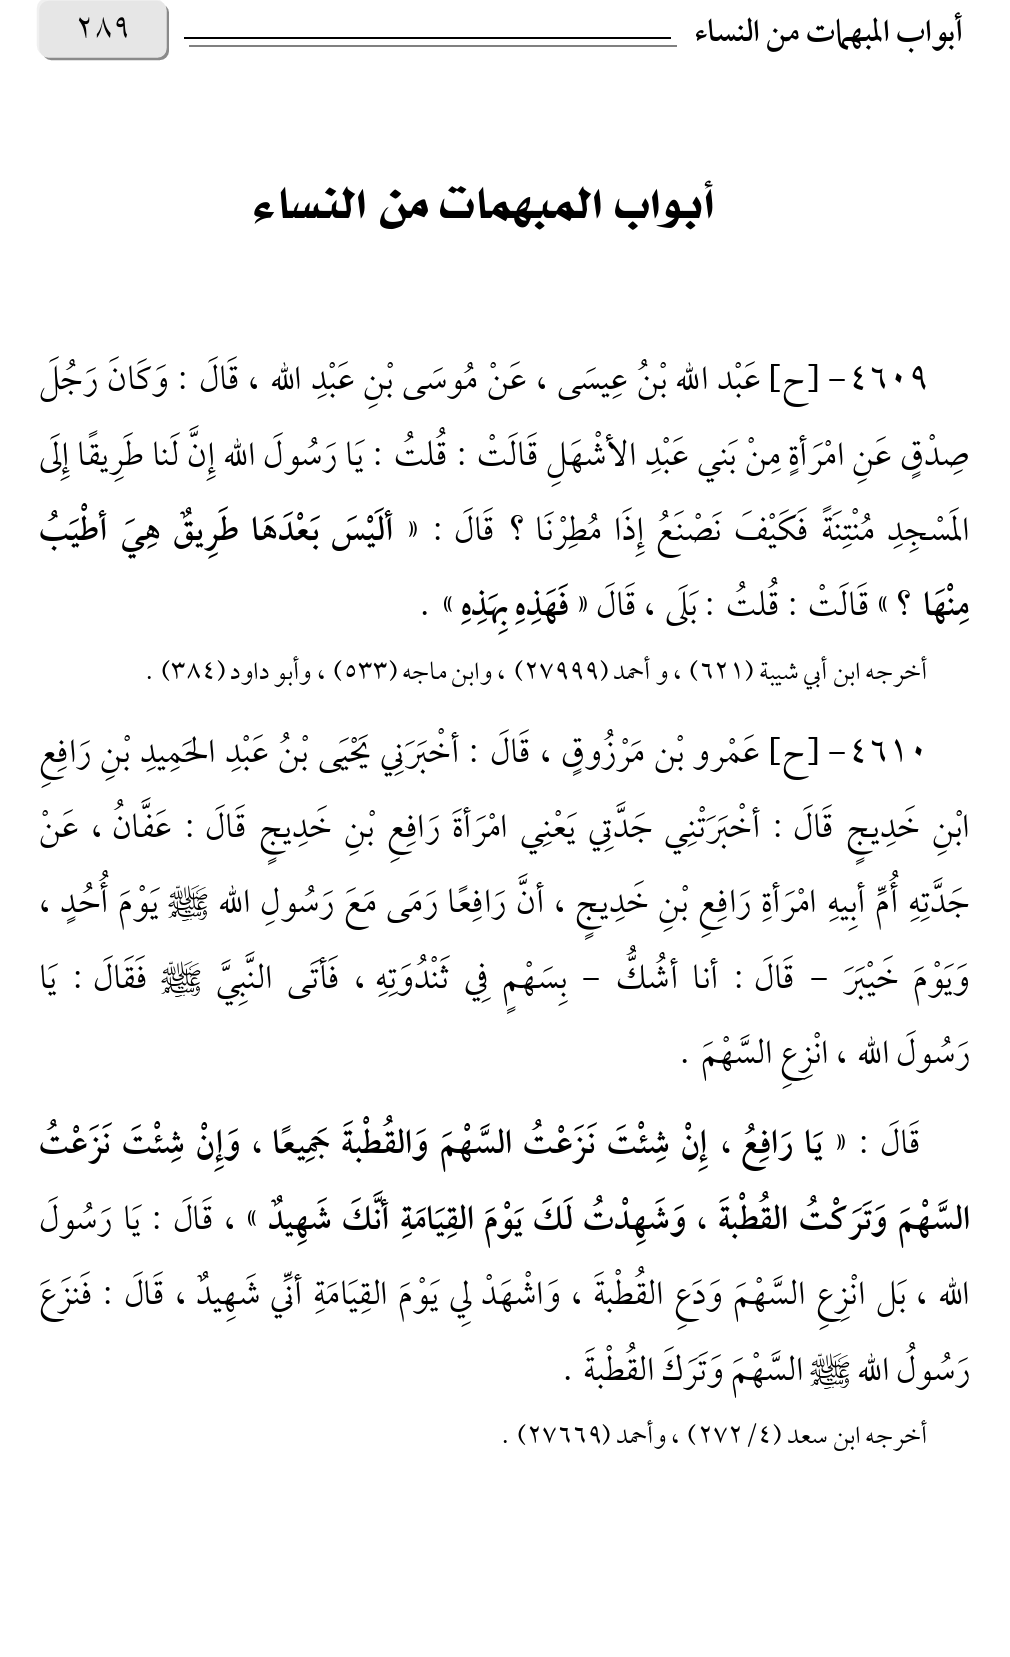 أبواب المبهمات من النساء ٢٨٩
أبواب المبهمات من النساء
٤٦٠٩- [ح] عَبْد الله بْنُ عِيسَى ، عَنْ مُوسَى بْنِ عَبْدِ الله ، قَالَ : وَكَانَ رَجُلَ
صِدْقٍ عَنِ امْرَأةٍ مِنْ بَني عَبْدِ الأشْهَلِ قَالَتْ : قُلتُ : يَا رَسُولَ الله إِنَّ لَنا طَرِيقًا إِلَى
المَسْجِدِ مُنْتِنَةً فَكَيْفَ نَصْنَعُ إِذَا مُطِرْنَا ؟ قَالَ : « ألَيْسَ بَعْدَهَا طَرِيقٌ هِيَ أطْيَبُ
مِنْهَا ؟ » قَالَتْ : قُلتُ : بَلَى ، قَالَ « فَهَذِهِ بِهَذِهِ » .
أخرجه ابن أبي شيبة (٦٢١) ، و أحمد (٢٧٩٩٩) ، وابن ماجه (٥٣٣) ، وأبو داود (٣٨٤) .
٤٦١٠- [ح] عَمْرو بْن مَرْزُوقٍ ، قَالَ : أخْبَرَنِي يَحْيَى بْنُ عَبْدِ الحَمِيدِ بْنِ رَافِعِ
ابْنِ خَدِيجٍ قَالَ : أخْبَرَتْنِي جَدَّتِي يَعْنِي امْرَأةَ رَافِعِ بْنِ خَدِيجٍ قَالَ : عَفَّانُ ، عَنْ
جَدَّتِهِ أُمِّ أبِيهِ امْرَأةِ رَافِعِ بْنِ خَدِيجٍ ، أنَّ رَافِعًا رَمَى مَعَ رَسُولِ الله ﷺ يَوْمَ أُحُدٍ ،
وَيَوْمَ خَيْبَرَ – قَالَ : أنا أشُكُّ – بِسَهْمٍ فِي ثَنْدُوَتِهِ ، فَأتَى النَّبِيَّ ﷺ فَقَالَ : يَا
رَسُولَ الله ، انْزِعِ السَّهْمَ .
قَالَ : « يَا رَافِعُ ، إِنْ شِئْتَ نَزَعْتُ السَّهْمَ وَالقُطْبةَ جَمِيعًا ، وَإِنْ شِئْتَ نَزَعْتُ
السَّهْمَ وَتَرَكْتُ القُطْبةَ ، وَشَهِدْتُ لَكَ يَوْمَ القِيَامَةِ أنَّكَ شَهِيدٌ » ، قَالَ : يَا رَسُولَ
الله ، بَل انْزِعِ السَّهْمَ وَدَعِ القُطْبةَ ، وَاشْهَدْ لِي يَوْمَ القِيَامَةِ أنِّي شَهِيدٌ ، قَالَ : فَنزَعَ
رَسُولُ الله ﷺ السَّهْمَ وَتَرَكَ القُطْبةَ .
أخرجه ابن سعد (٤/ ٢٧٢) ، وأحمد (٢٧٦٦٩) .